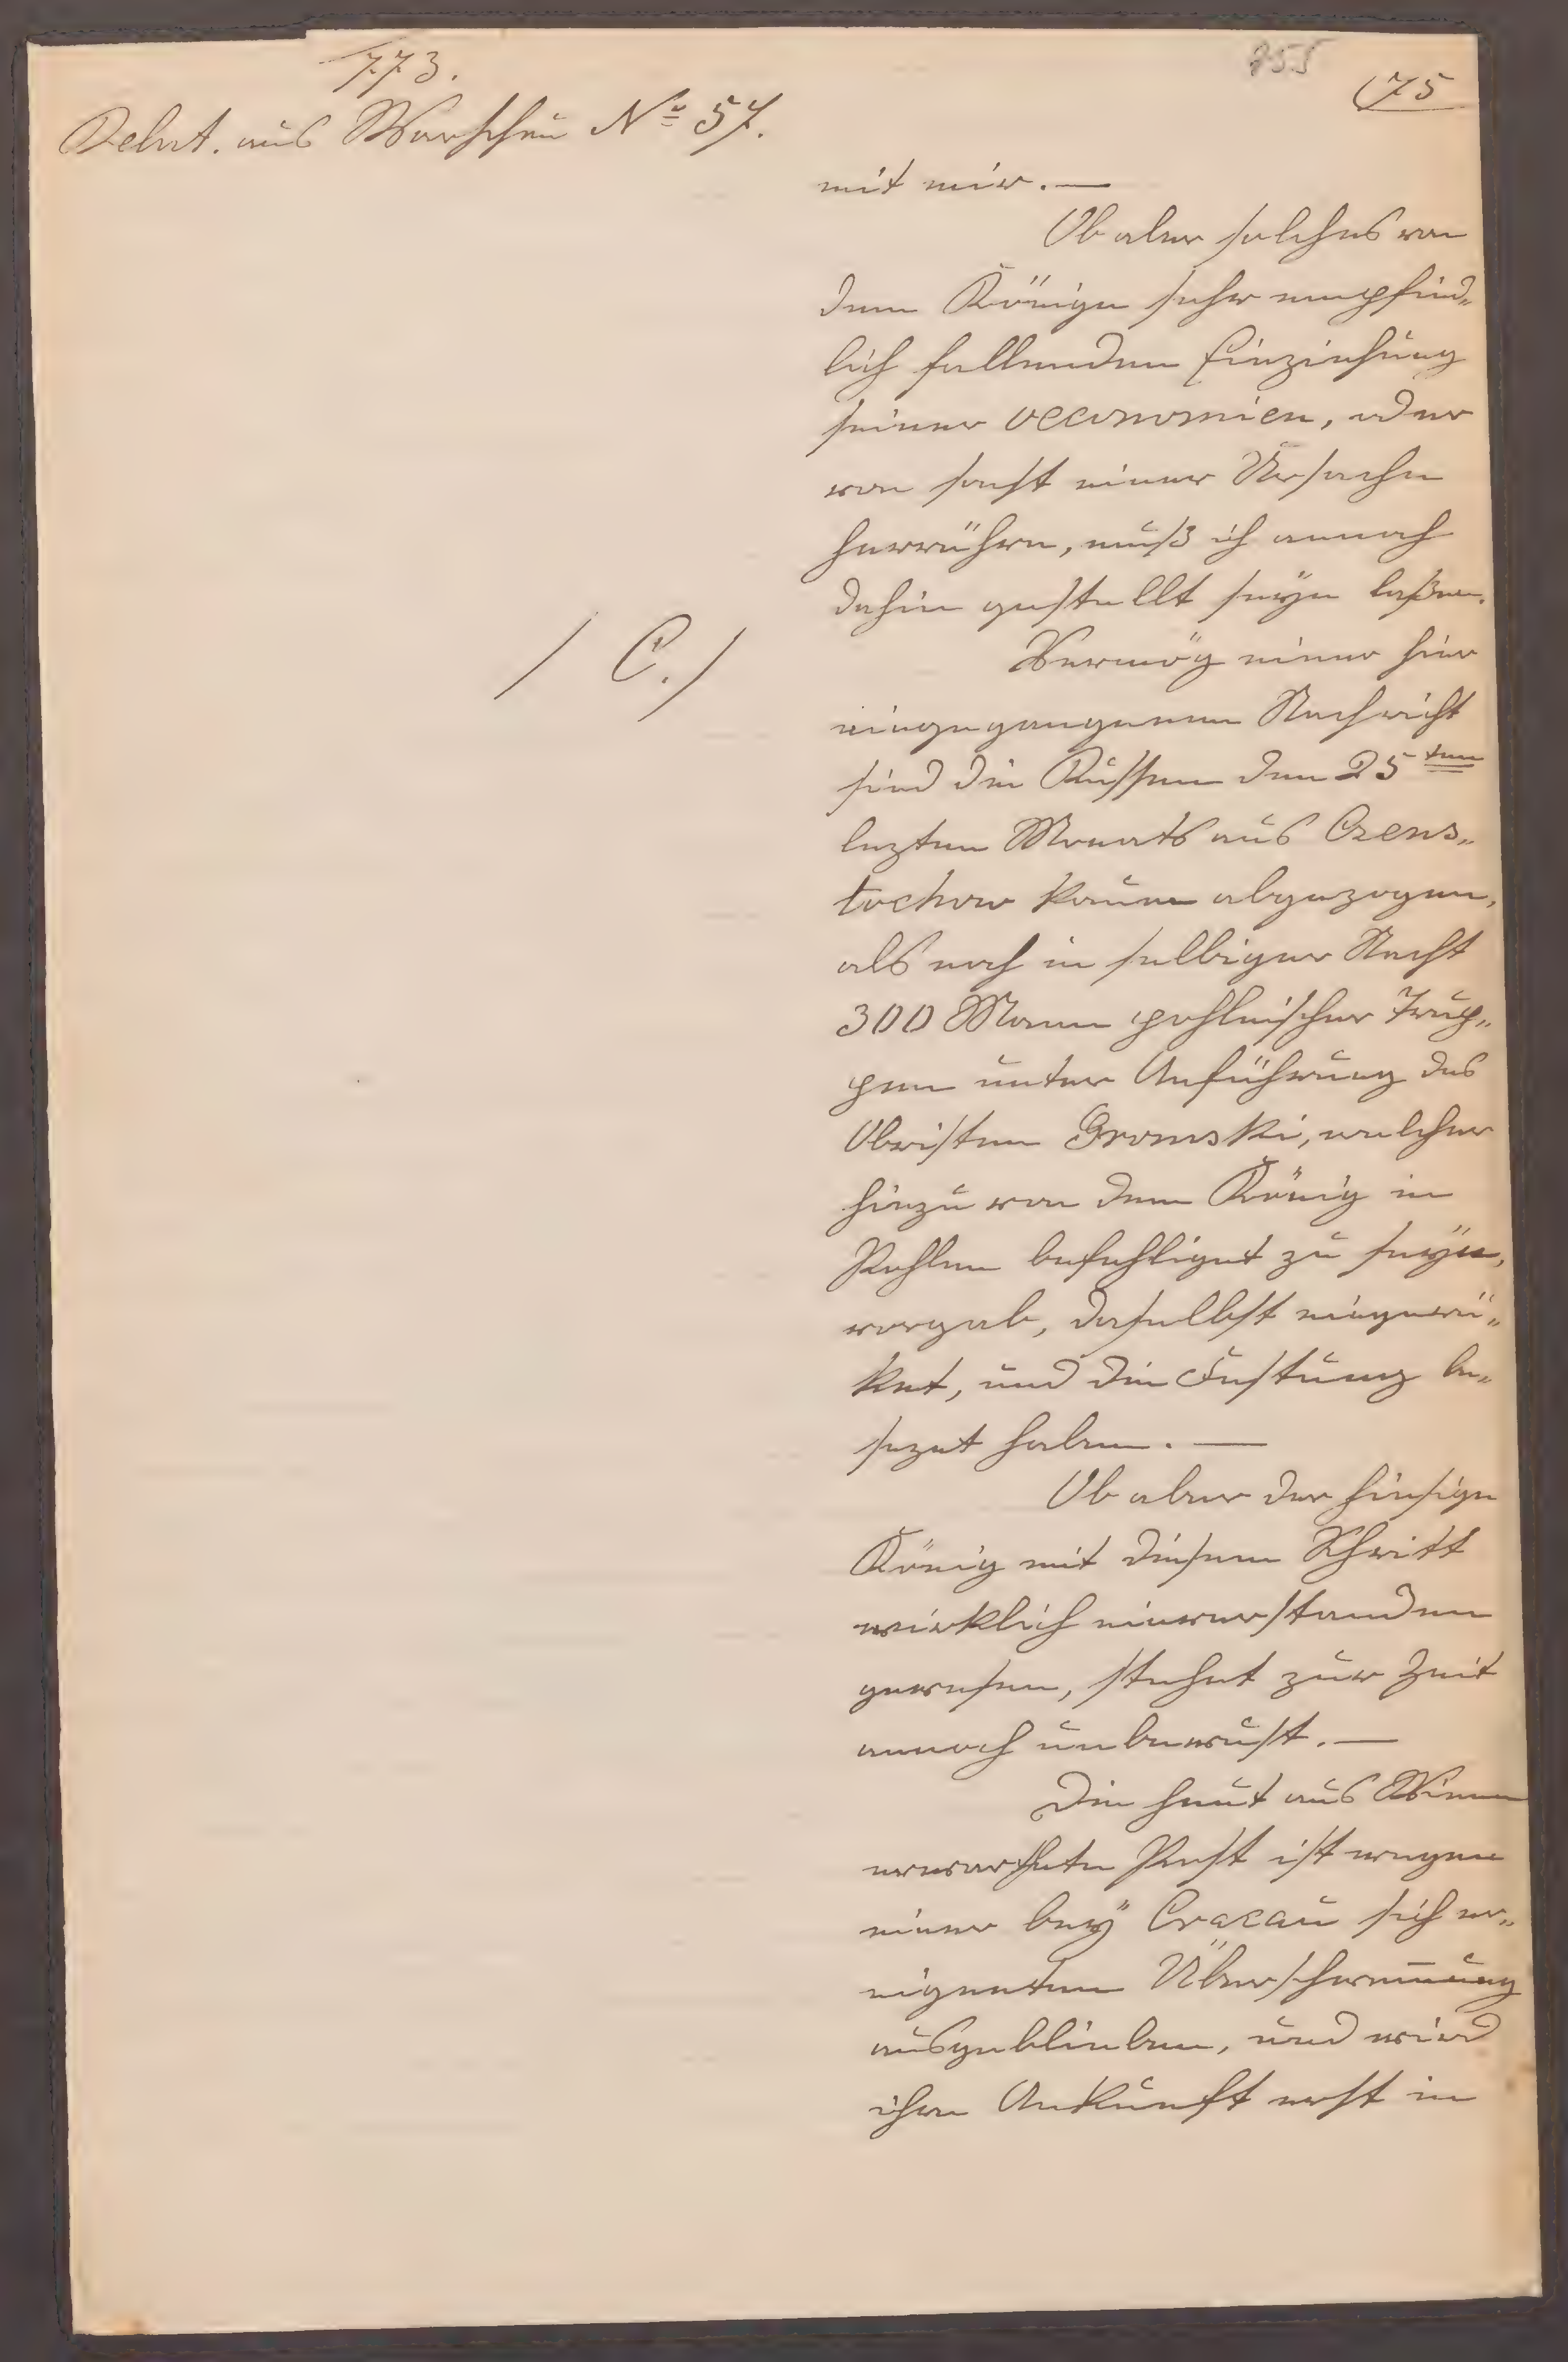 773.
755
75
Debut. aus Warschau No 57.
mit mir. —
Ob aber solches von
dem Könige sehr empfind„
lich fallenden Einziehung
seiner oeconomien, oder
von sonst einer Ursache
herrühre, muß ich annoch
dahin gestellt seyn laßen.
/ C. /
Vermög einer hier
eingegangenen Nachricht
sind die Russen den 25ten
lezten Monats aus Czens„
tochow kaum abgezogen,
als noch in selbiger Nacht
300 Mann pohlnischer Trup„
pen unter Anführung des
Obristen Gromski, welcher
hiezu von dem König in
Pohlen befehliget zu seyn,
vorgab, daselbst eingerü„
ket, und die Festung be„
sezet haben. —
Ob aber der hiesige
König mit diesem Schritt
wirklich einverstanden
gewesen, stehet zur Zeit
annoch unbewust. —
Die heut aus Wienn
erwarthete Post ist wegen
einer bey Cracau sich er„
eigneten Überschwem̅ung
ausgeblieben, und wird
ihre Ankunft erst in